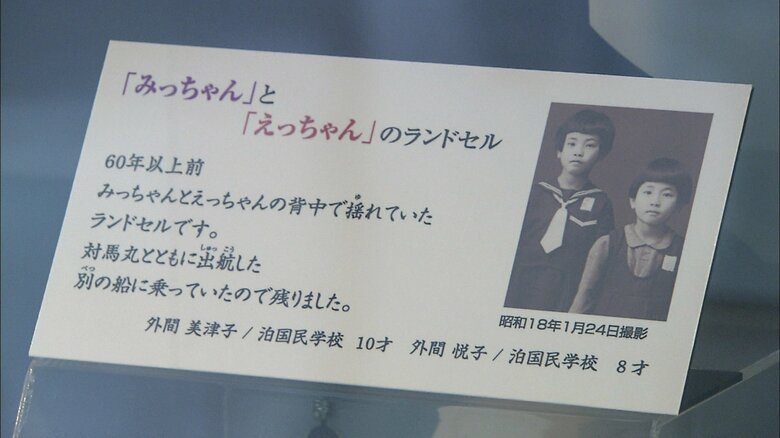 「みっちゃん」と
「えっちゃん」のランドセル
60年以上前
みっちゃんとえっちゃんの背中で揺れていた
ランドセルです。
対馬丸とともに出航した
別の船に乗っていたので残りました。
外間 美津子/泊国民学校 10才 外間 悦子/泊国民学校 8才
昭和18年1月24日撮影